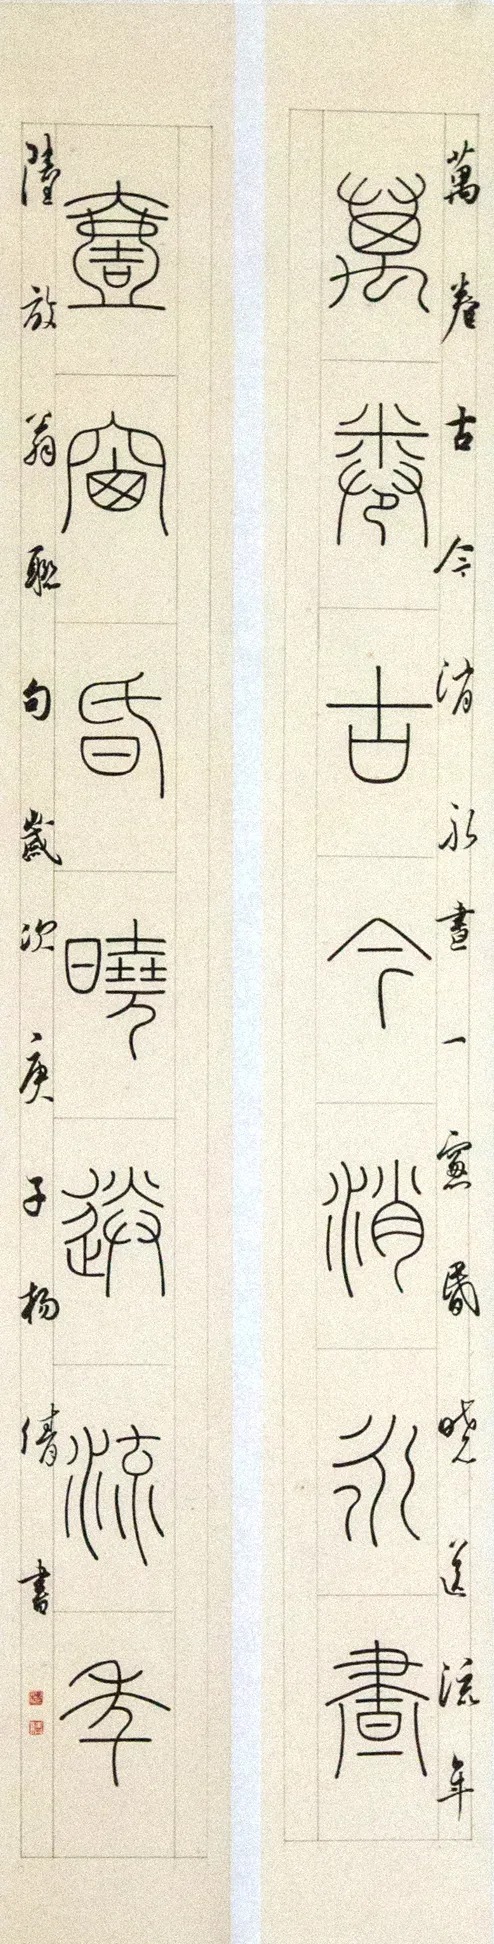 萬卷古今消永晝一窻昬曉送流年
萬卷古今消永晝
壹窗昏曉送流年
陸放翁聯句歲次庚子楊倩書